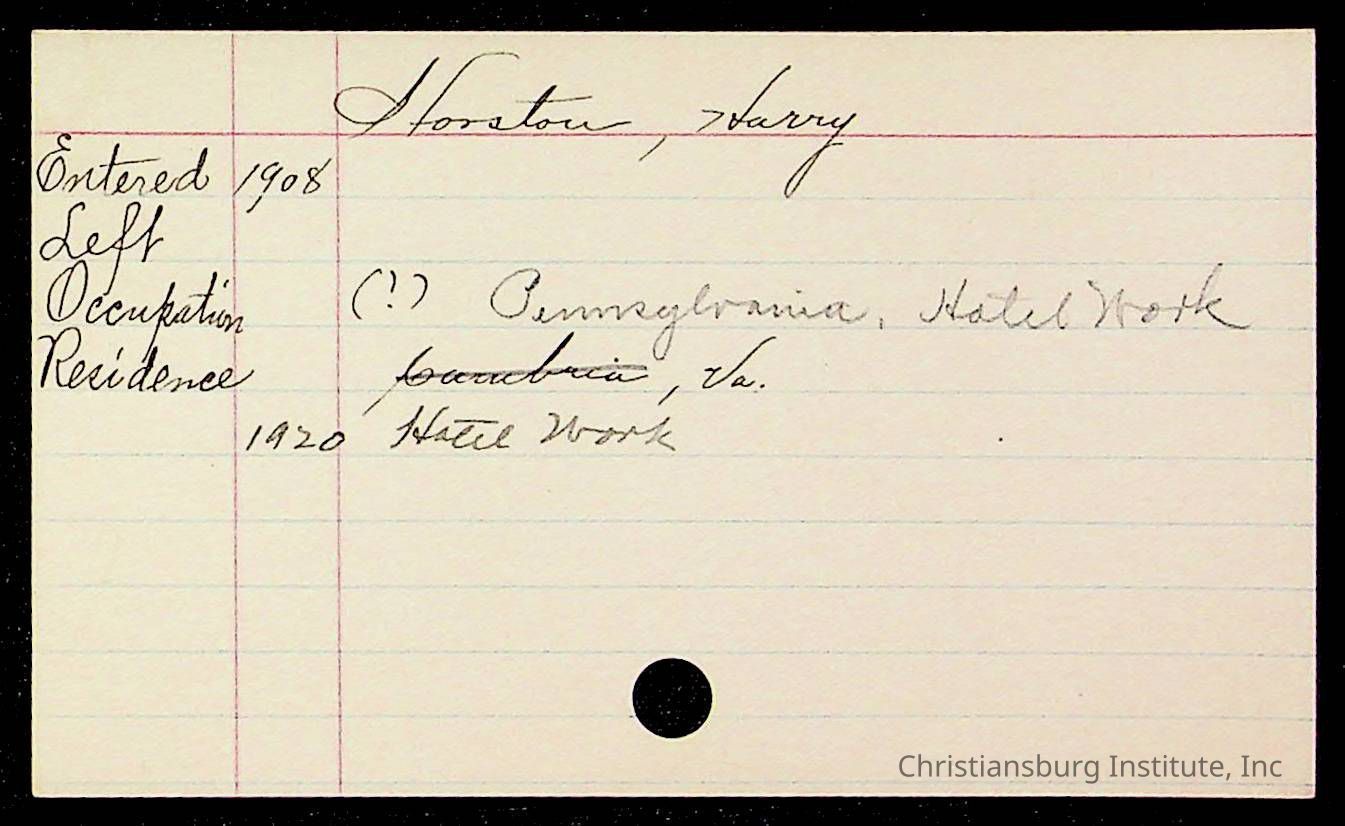 Horston, Harry
Entered 1908
Left
Occupation (?) Pennsylvania, Hotel Work
Residence Cambria, Va.
1920 Hotel Work
Christiansburg Institute, Inc